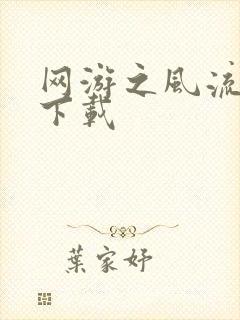 网游之風流
下載
葉家妤